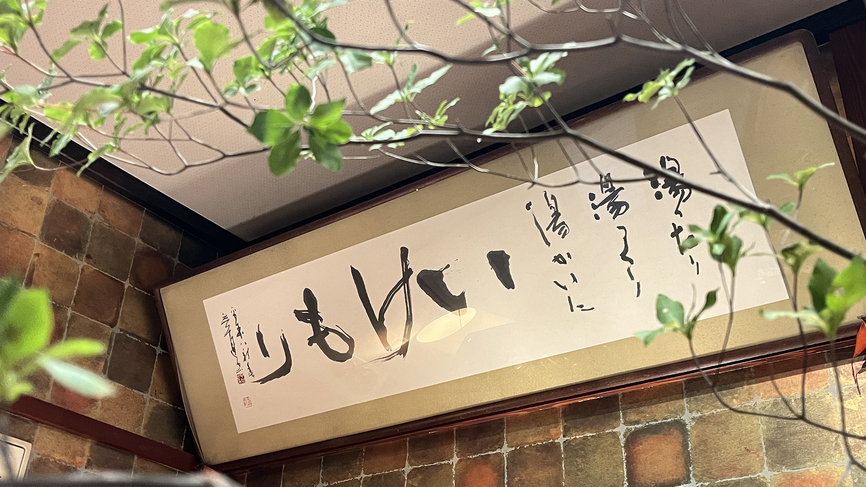 湯ったり
湯っくり
湯かいに
いけもり